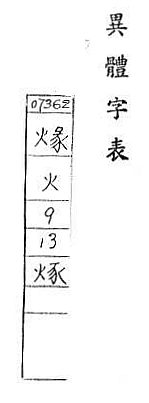 異體字表
07362
火
9
13